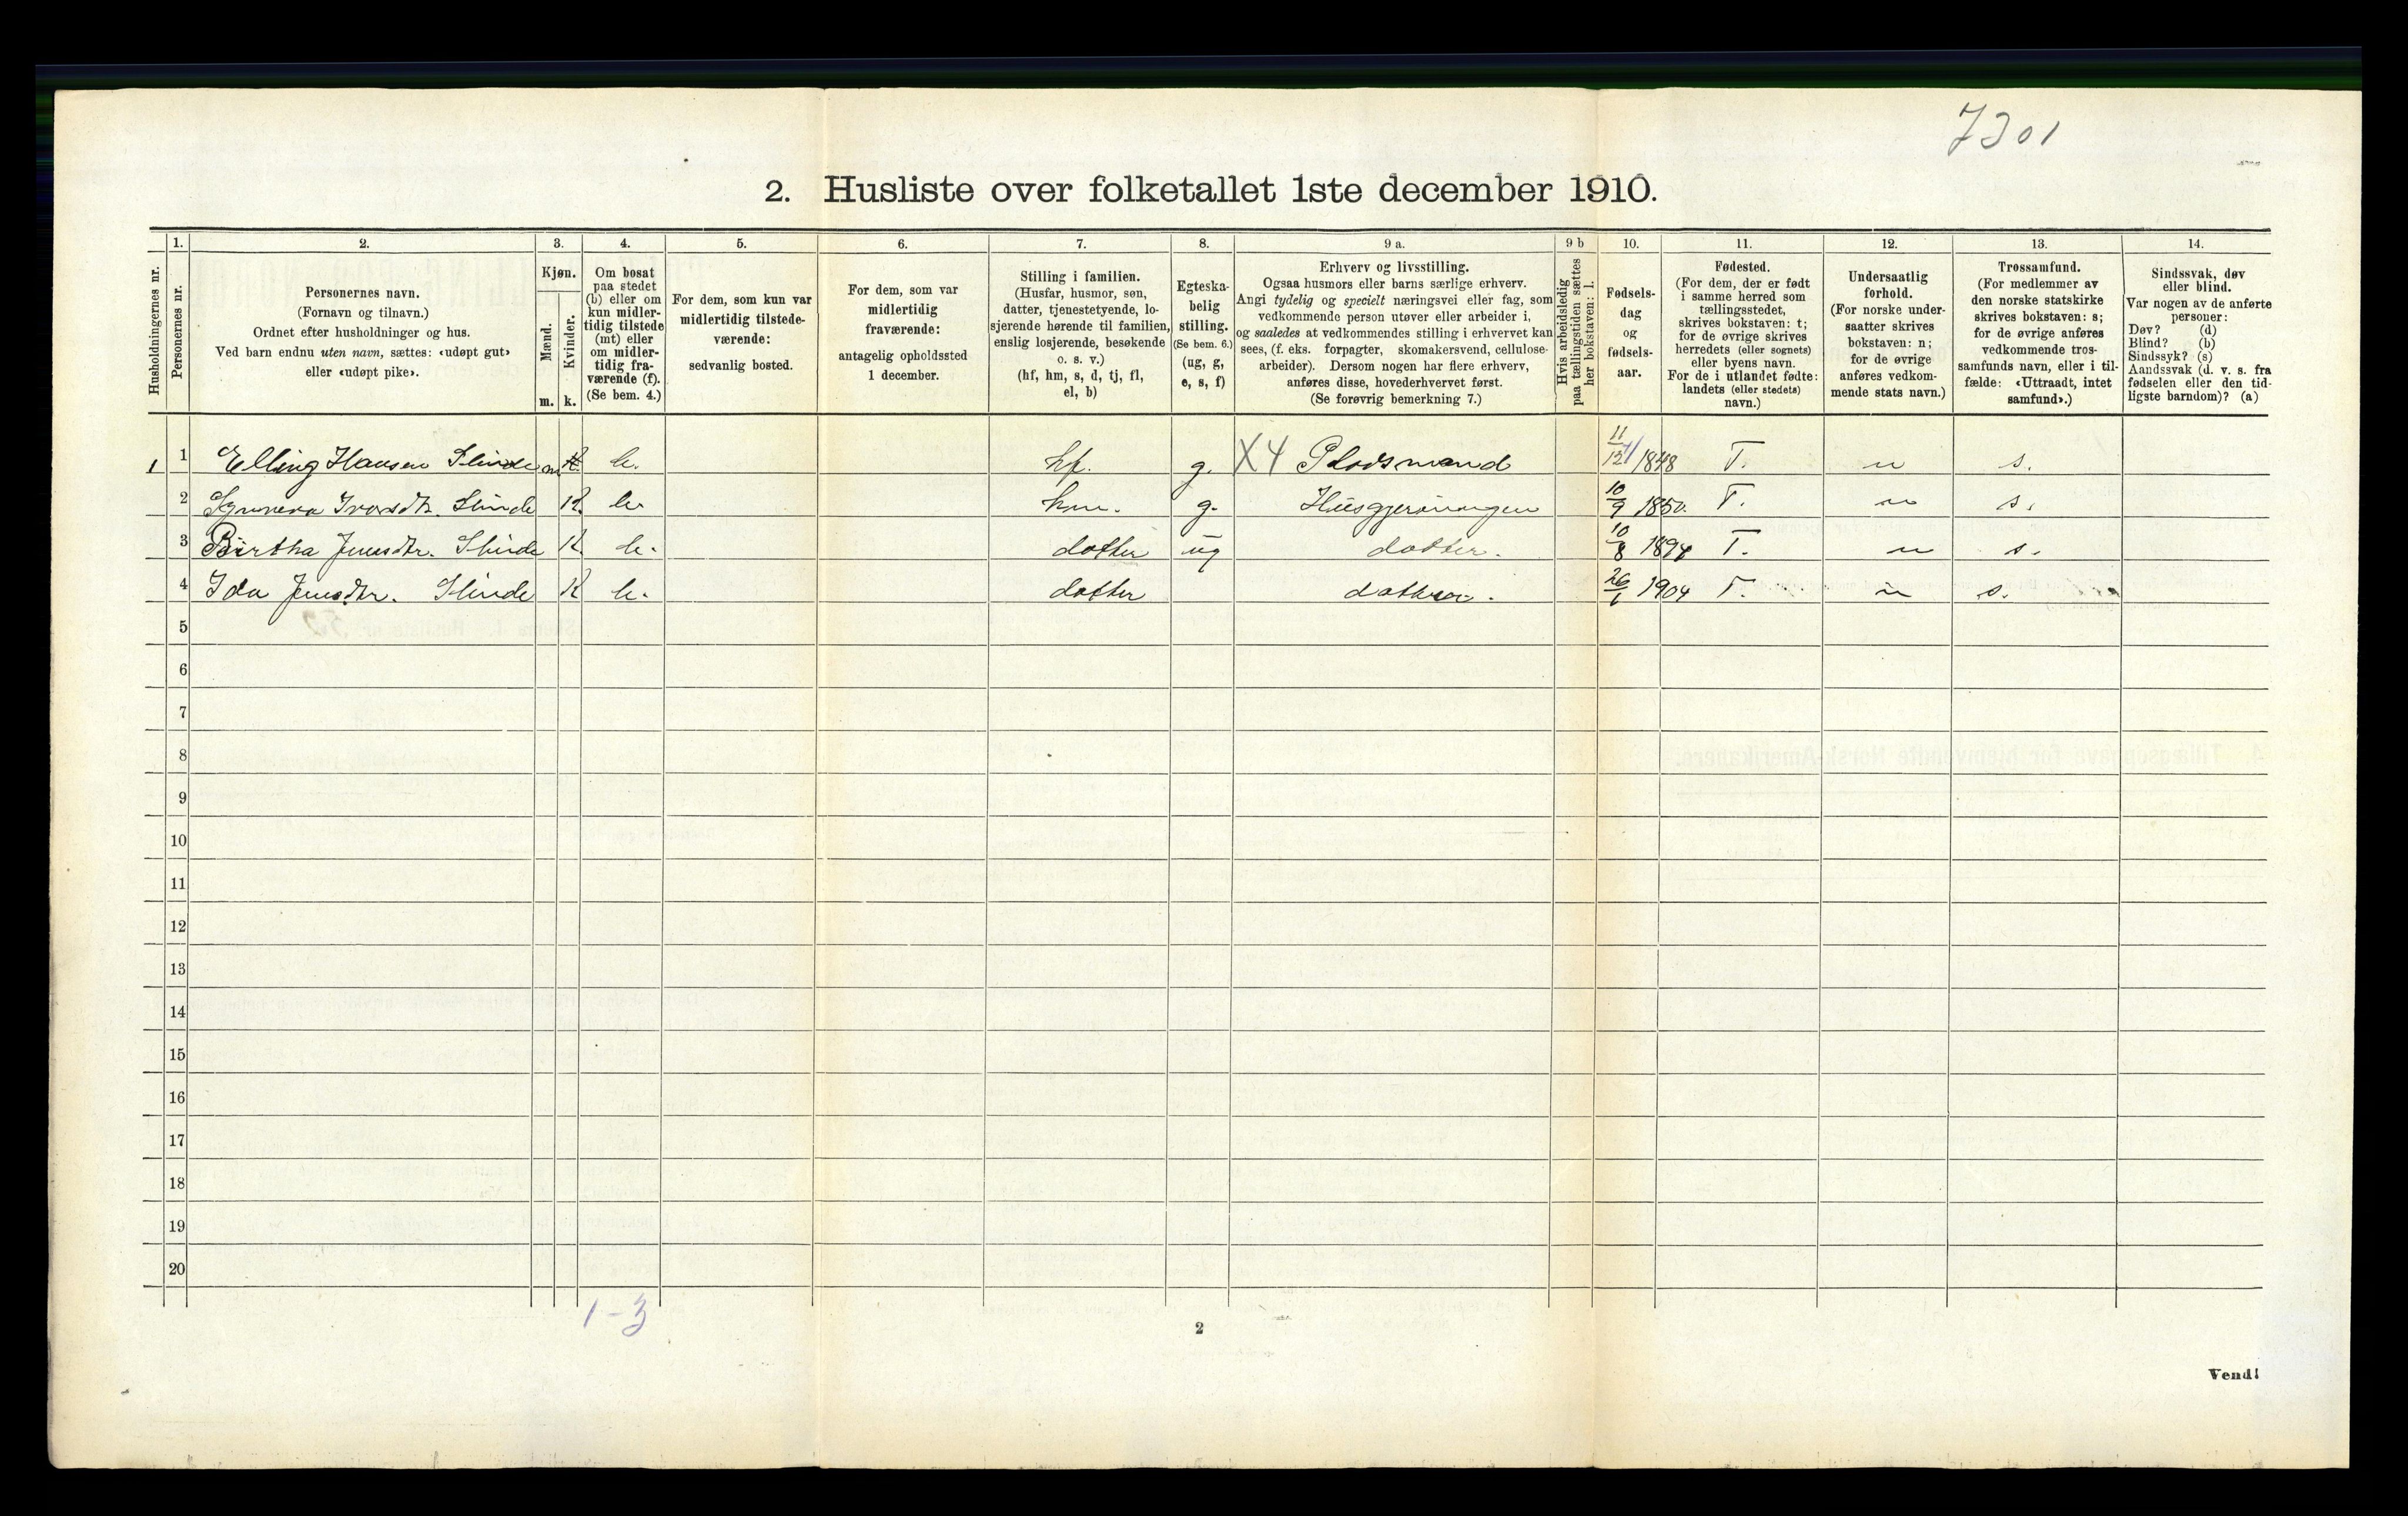 7301
2. Husliste over folketallet 1ste december 1910.
Husholdningernes nr.
1. Personernes nr.
2. Personernes navn. (Fornavn og tilnavn.) Ordnet efter husholdninger og hus. Ved barn endnu uten navn, sættes: «udøpt gut» eller «udøpt pike».
3. Kjøn. Mænd. m. Kvinder. k.
4. Om bosat paa stedet (b) eller om kun midlertidig tilstede (mt) eller om midlertidig fraværende (f). (Se bem. 4.)
5. For dem, som kun var midlertidig tilstedeværende: sedvanlig bosted.
6. For dem, som var midlertidig fraværende: antagelig opholdssted 1 december.
7. Stilling i familien. (Husfar, husmor, søn, datter, tjenestetyende, losjerende hørende til familien, enslig losjerende, besøkende o. s. v.) (hf, hm, s, d, tj, fl, el, b)
8. Egteskabelig stilling. (Se bem. 6.) (ug, g, e, s, f)
9 a. Erhverv og livsstilling. Ogsaa husmors eller barns særlige erhverv. Angi tydelig og specielt næringsvei eller fag, som vedkommende person utøver eller arbeider i, og saaledes at vedkommendes stilling i erhvervet kan sees, (f. eks. forpagter, skomakersvend, cellulosearbeider). Dersom nogen har flere erhverv, anføres disse, hovederhvervet først. (Se forøvrig bemerkning 7.)
9 b Hvis arbeidsledig paa tællingstiden sættes her bokstaven: l.
10. Fødselsdag og fødselsaar.
11. Fødested. (For dem, der er født i samme herred som tællingsstedet, skrives bokstaven: t; for de øvrige skrives herredets (eller sognets) eller byens navn. For de i utlandet fødte: landets (eller stedets) navn.)
12. Undersaatlig forhold. (For norske undersaatter skrives bokstaven: n; for de øvrige anføres vedkommende stats navn.)
13. Trossamfund. (For medlemmer av den norske statskirke skrives bokstaven: s; for de øvrige anføres vedkommende trossamfunds navn, eller i tilfælde: «Uttraadt, intet samfund».)
14. Sindssvak, døv eller blind. Var nogen av de anførte personer: Døv? (d) Blind? (b) Sindssyk? (s) Aandssvak (d. v. s. fra fødselen eller den tidligste barndom)? (a)
1 1 Elling Hansen Slinde m b. hf. g. X4 Pladsmand 11/12 1848 T. n s.
2 Synneva Ivarsdtr. Slinde K b. hm. g. Husgjerningen 10/9 1850. T. n s.
3 Birtha Jensdtr. Slinde K b. datter ug datter. 10/8 1894 T. n s.
4 Ida Jensdtr. Slinde K b. datter datter. 26/1 1904 T. n s.
5
6
7
8
9
10
11
12
13
14
15
16
17
18
19
20
1-3
2
Vend!